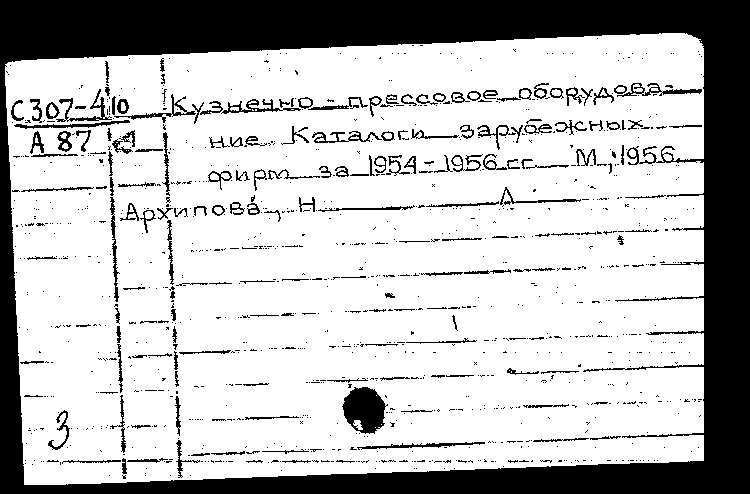 С307-410 Кузнечно-прессовое оборудова-
А 87 ние Каталоги зарубежных
фирм за 1954-1956 гг М, 1956
Архипова, Н А
3